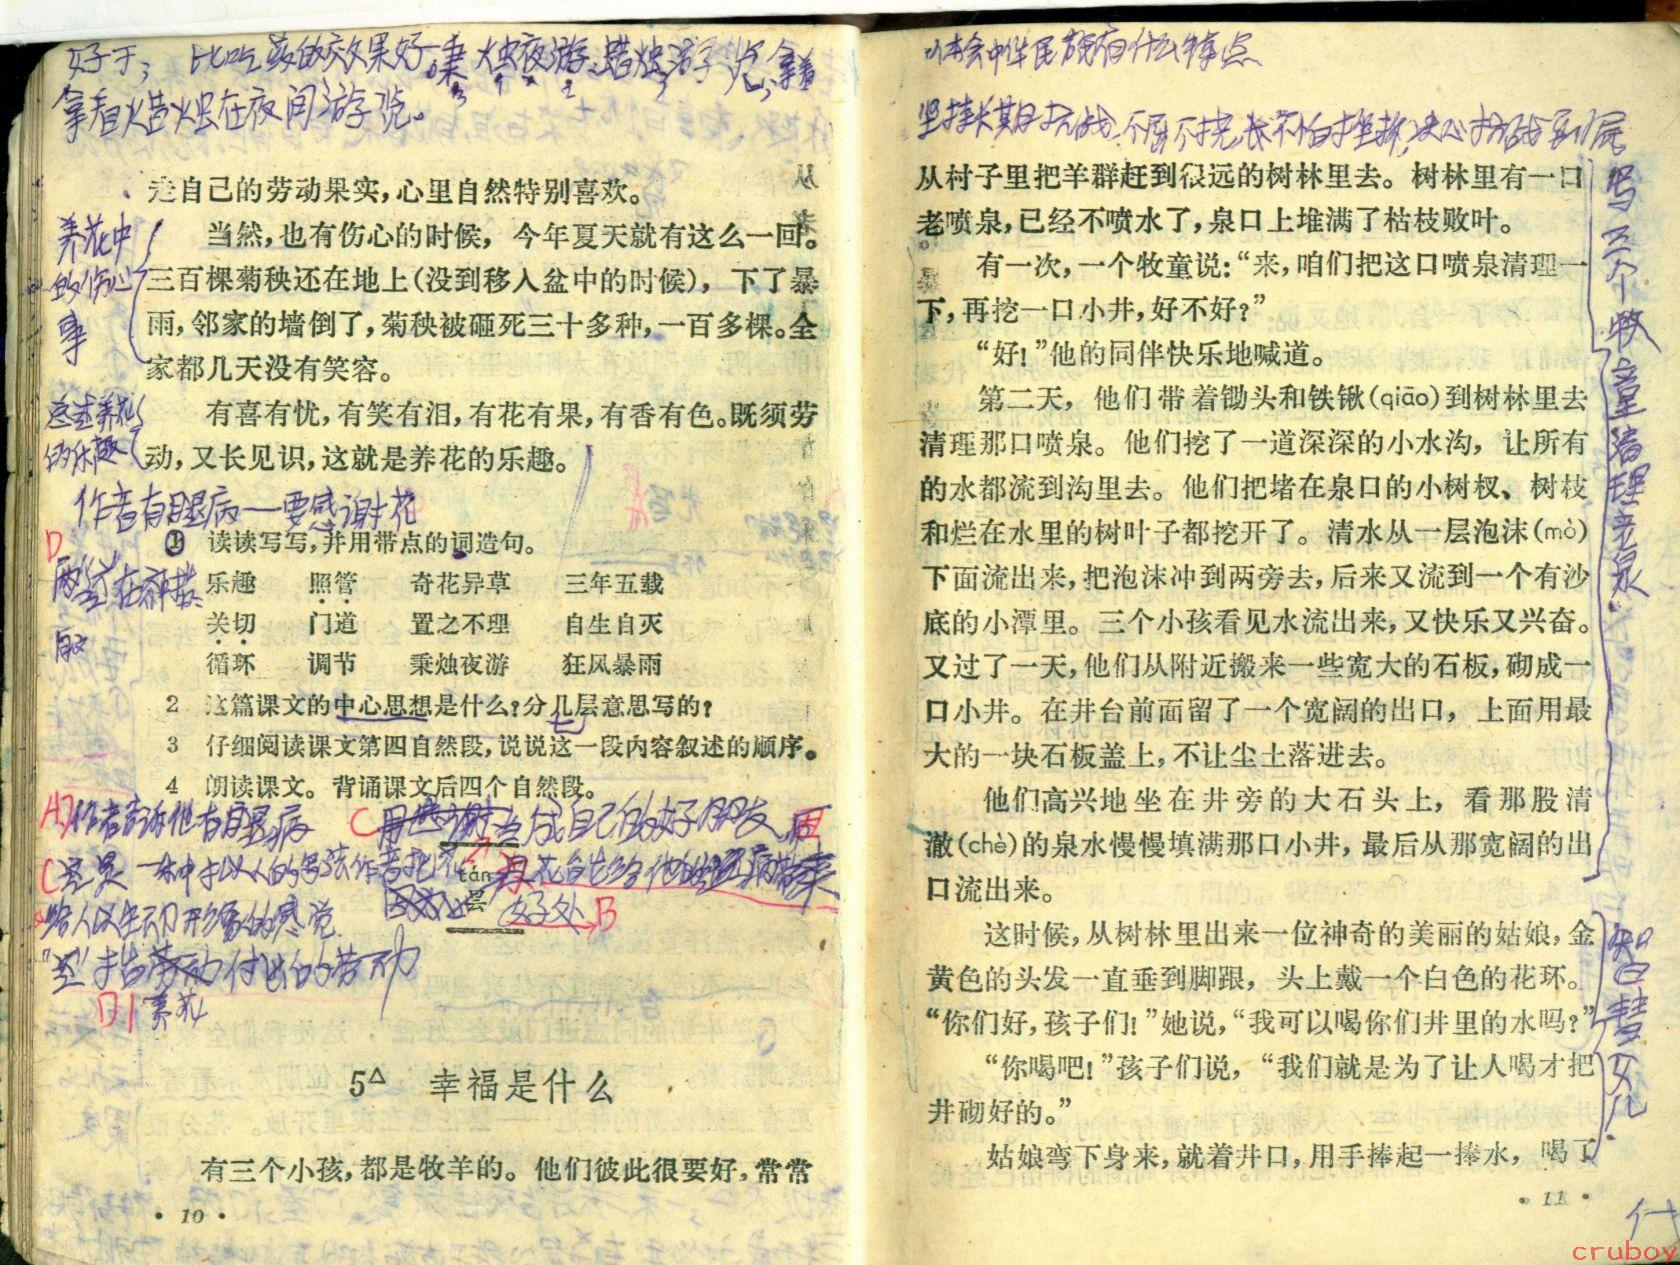 好于； 比吃药的效果好
拿着火昔火虫在夜间游览。
走自己的劳动果实，心里自然特别喜欢。
养花中
的伤心
事
当然，也有伤心的时候，今年夏天就有这么一回。
三百棵菊秧还在地上（没到移入盆中的时候），下了暴
雨，邻家的墙倒了，菊秧被砸死三十多种，一百多棵。全
家都几天没有笑容。
有喜有忧，有笑有泪，有花有果，有香有色。既须劳
动，又长见识，这就是养花的乐趣。
的乐趣
作者有眼病一要感谢花
D
1 读读写写，并用带点的词造句。
乐趣 照管 奇花异草 三年五载
关切 门道 置之不理 自生自灭
循环 调节 秉烛夜游 狂风暴雨
2 这篇课文的中心思想是什么？分几层意思写的？
3 仔细阅读课文第四自然段，说说这一段内容叙述的顺序。
4 朗读课文。背诵课文后四个自然段。
当成自己的好朋友
tán
昙
好处 B
给人以生动形象的感觉
付出的劳动
养花
5△ 幸福是什么
有三个小孩，都是牧羊的。他们彼此很要好，常常
· 10 ·
体会中华民族有什么特点
坚持长期抗战，不屈不挠
从村子里把羊群赶到很远的树林里去。树林里有一口
老喷泉，已经不喷水了，泉口上堆满了枯枝败叶。
有一次，一个牧童说：“来，咱们把这口喷泉清理一
下，再挖一口小井，好不好？”
“好！”他的同伴快乐地喊道。
第二天，他们带着锄头和铁锹（qiāo）到树林里去
清理那口喷泉。他们挖了一道深深的小水沟，让所有
的水都流到沟里去。他们把堵在泉口的小树杈、树枝
和烂在水里的树叶子都挖开了。清水从一层泡沫（mò）
下面流出来，把泡沫冲到两旁去，后来又流到一个有沙
底的小潭里。三个小孩看见水流出来，又快乐又兴奋。
又过了一天，他们从附近搬来一些宽大的石板，砌成一
口小井。在井台前面留了一个宽阔的出口，上面用最
大的一块石板盖上，不让尘土落进去。
他们高兴地坐在井旁的大石头上，看那股清
澈（chè）的泉水慢慢填满那口小井，最后从那宽阔的出
口流出来。
这时候，从树林里出来一位神奇的美丽的姑娘，金
黄色的头发一直垂到脚跟，头上戴一个白色的花环。
“你们好，孩子们！”她说，“我可以喝你们井里的水吗？”
“你喝吧！”孩子们说，“我们就是为了让人喝才把
井砌好的。”
姑娘弯下身来，就着井口，用手捧起一捧水，喝了
写三个牧童清理老泉.
智慧女儿.
· 11 ·
cruboy